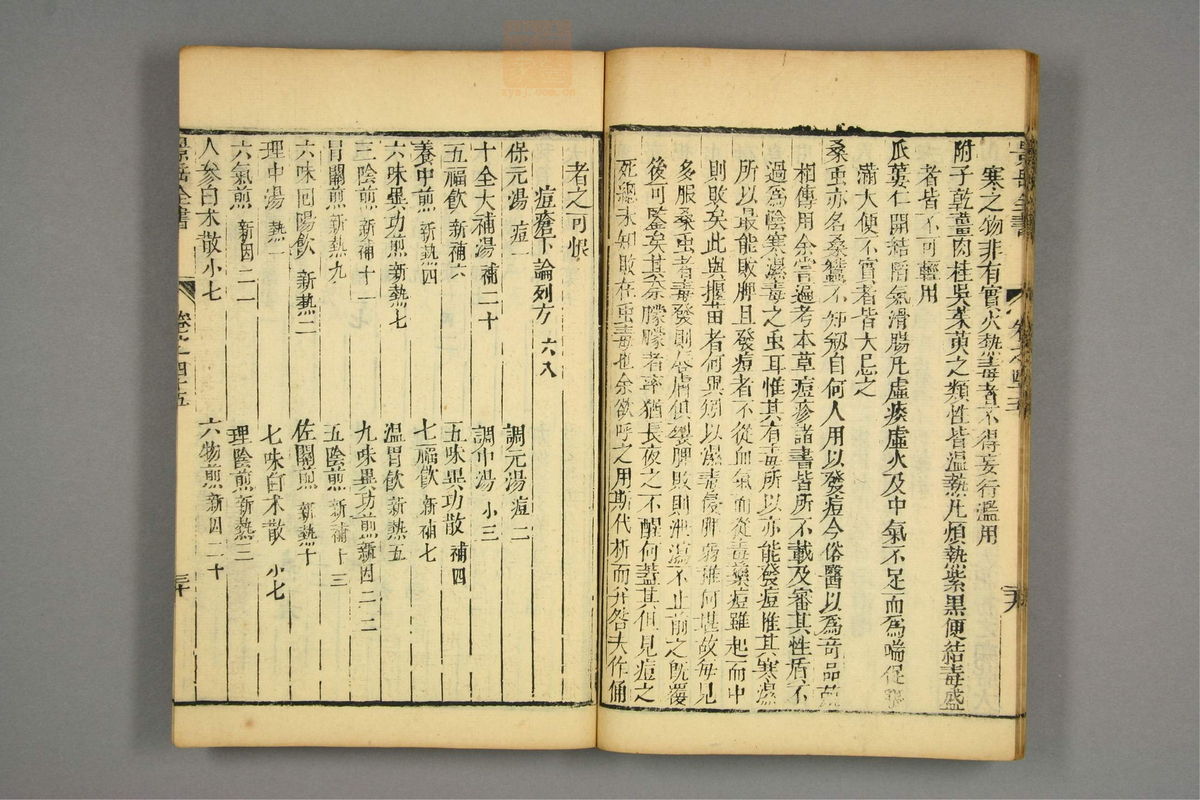 寒之物非有實火熱毒者不得妄行濫用
附子乾薑肉桂吳茱萸之類性皆溫熱凡煩熱紫黑便結毒盛
者皆不可輕用
瓜蔞仁開結陷氣滑腸凡虛痰虛火及中氣不足而為喘促
滿大便不實者皆大忌之
桑虫亦名桑蠶不知刱自何人用以發痘今俗醫以為奇品
相傳用余嘗遍考本草痘疹諸書皆所不載及審其性盾不
過為陰寒濕毒之虫耳惟其有毒所以亦能發痘惟其寒濕
所以最能敗脾且發痘者不從血氣而從毒藥痘雖起而中
則敗矣此與揠苗者何異矧以濕毒侵脾弱稚何堪故每見
多服桑虫者毒發則唇膚俱裂脾敗則泄瀉不止前之既覆
後可鑒矣其奈朦朦者率猶長夜之不醒何蓋其但見痘之
死總未知敗在虫毒也余欲呼之用斯代析而并咎夫作俑
景岳全書
卷之四十五
者之可恨
痘瘡下論列方 六八
保元湯 痘一
調元湯 痘二
十全大補湯 補二十
調中湯 小三
五福飲 新補六
五味異功散 補四
養中煎 新熱四
七福飲 新補七
六味異功煎 新熱七
溫胃飲 新熱五
三陰煎 新補十一
九味異功煎 新因二二
胃關煎 新熱九
五陰煎 新補十三
六味回陽飲 新熱二
佐關煎 新熱十
理中湯 熱一
七味白朮散 小七
六氣煎 新因二一
理陰煎 新熱三
人參白朮散 小七
六物煎 新因二十
景岳全書
卷之四十五
三十